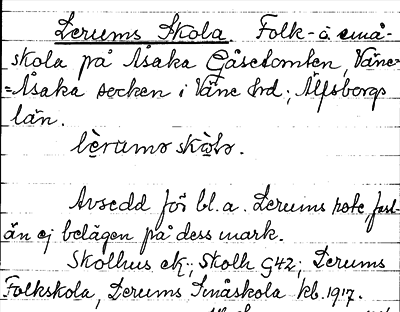 Lerums Skola. Folk- o. små-
skola på Åsaka Gåsetomten, Väne-
=Åsaka socken i Väne hrd; Älfsborgs
län.
lèrums skòlo.
Avsedd för bl. a. Lerums rote, fast-
än ej belägen på dess mark.
Skolhus ek; Skolh G42; Lerums
Folkskola, Lerums Småskola kb. 1917.